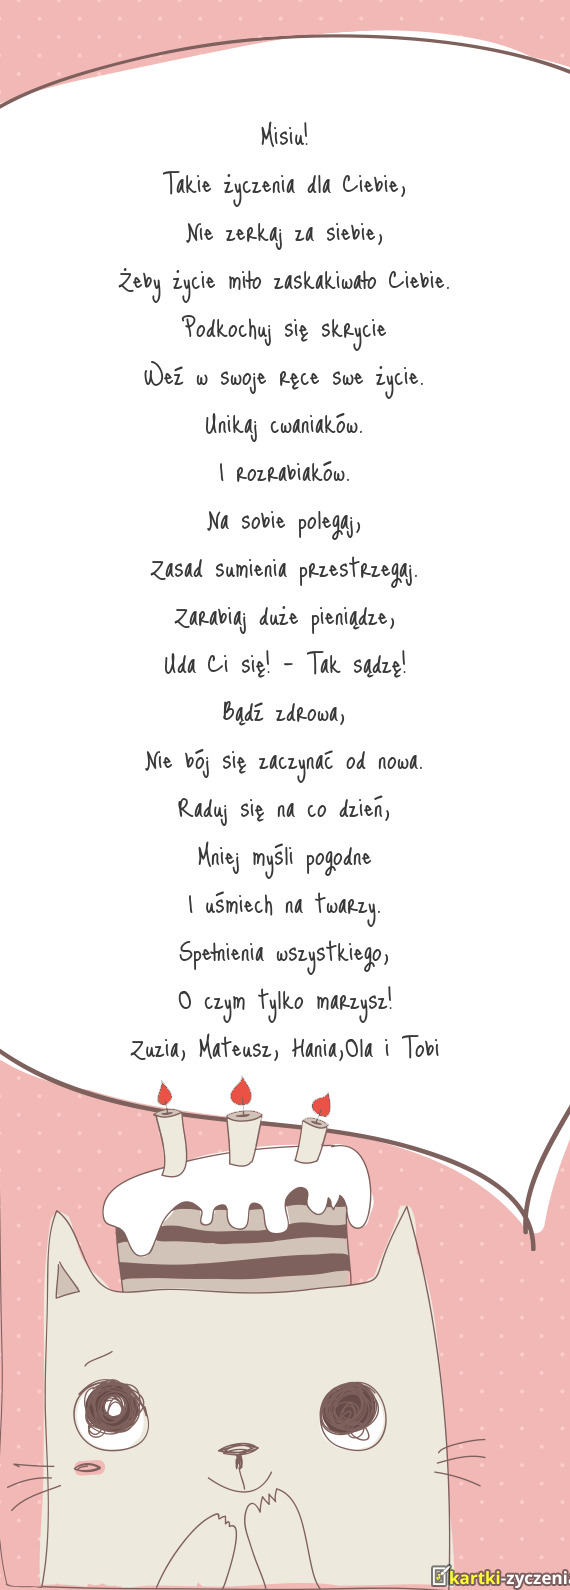 Misiu!
Takie życzenia dla Ciebie,
Nie zerkaj za siebie,
Żeby życie miło zaskakiwało Ciebie.
Podkochuj się skrycie
Weź w swoje ręce swe życie.
Unikaj cwaniaków.
I rozrabiaków.
Na sobie polegaj,
Zasad sumienia przestrzegaj.
Zarabiaj duże pieniądze,
Uda Ci się! - Tak sądzę!
Bądź zdrowa,
Nie bój się zaczynać od nowa.
Raduj się na co dzień,
Mniej myśli pogodne
I uśmiech na twarzy.
Spełnienia wszystkiego,
O czym tylko marzysz!
Zuzia, Mateusz, Hania,Ola i Tobi
kartki-zyczeni